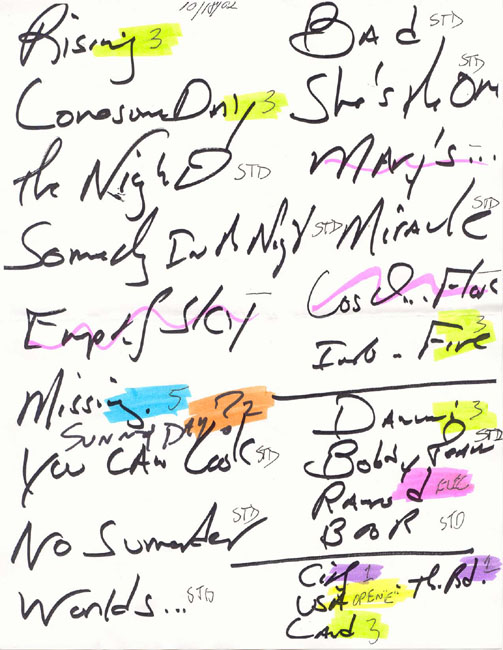 10/18/02
Rising 3
Lonesome Day 3
the Night STD
Somedy In th Night STD
Empty Sky
Missing. 5 ?2
SUNNY DAY
You CAN Look STD
No Surrender STD
Worlds... STD
BAd STD
She's the One STD
MARY'S...
Miracle STD
Fire 3
Into -
DANCING 3
Bobby Jean STD
Ramrod ELEC
BOR STD
City 1
th. Bd. 1
USA OPEN E
Land 3